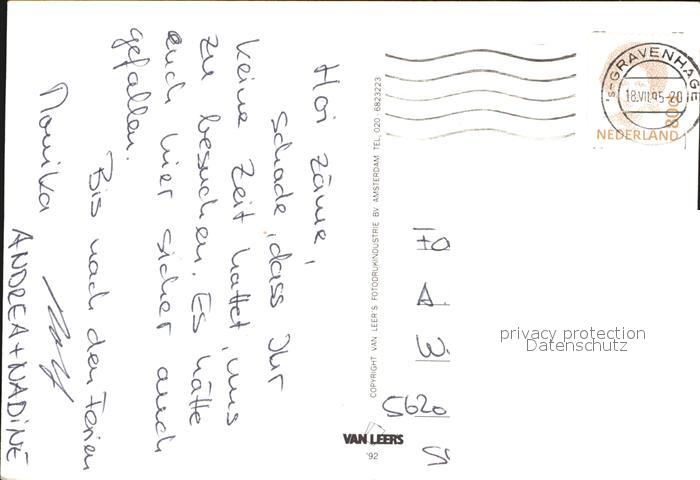 Hoi zäme,
schade, dass Ihr
keine Zeit hattet, uns
zu besuchen. Es hätte
euch hier sicher auch
gefallen.
Bis nach den Ferien
Monika
ANDREA+NADINE
COPYRIGHT VAN LEER'S FOTODRUKINDUSTRIE BV AMSTERDAM TEL. 020-6823223
VAN LEER'S
'92
's-GRAVENHAGE
18.VII.95-20
80c
NEDERLAND
5620
privacy protection
Datenschutz